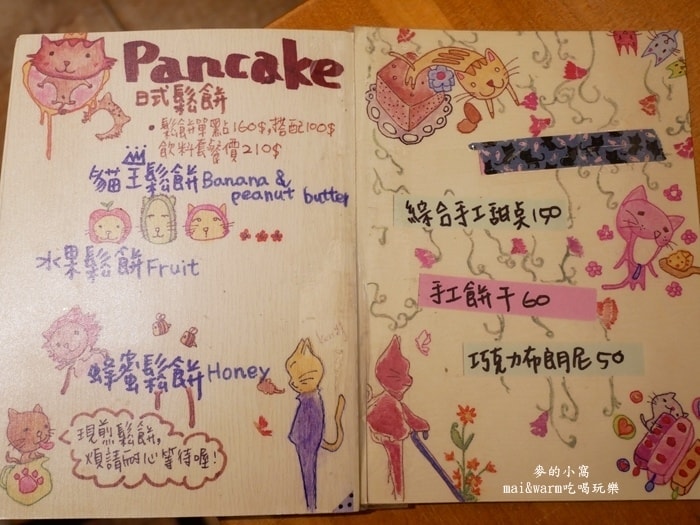 Pancake
日式鬆餅
•鬆餅單點160$,搭配100$
飲料套餐價210$
貓王鬆餅Banana &
peanut butter
水果鬆餅Fruit
蜂蜜鬆餅Honey
現煎鬆餅,
煩請耐心等待喔!
綜合手工甜桌150
手工餅干60
巧克力布朗尼50
麥的小窩
mai&warm吃喝玩樂